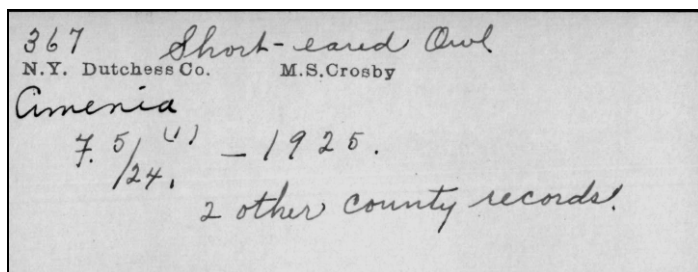 367 Short-eared Owl
N.Y. Dutchess Co. M.S.Crosby
Amenia
7. 5/24. (1) - 1925.
2 other county records.